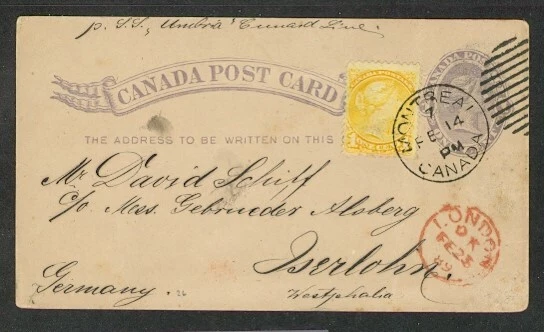 p. S.S. "Umbria" Cunard Line.
CANADA POST CARD
THE ADDRESS TO BE WRITTEN ON THIS
CANADA POST
MONTREAL
7
FE 14
PM
CANADA
Mr David Schiff
c/o Mess. Gebrueder Alsberg
LONDON
FE 25
89
Iserlohn.
Germany.
Westphalia
26